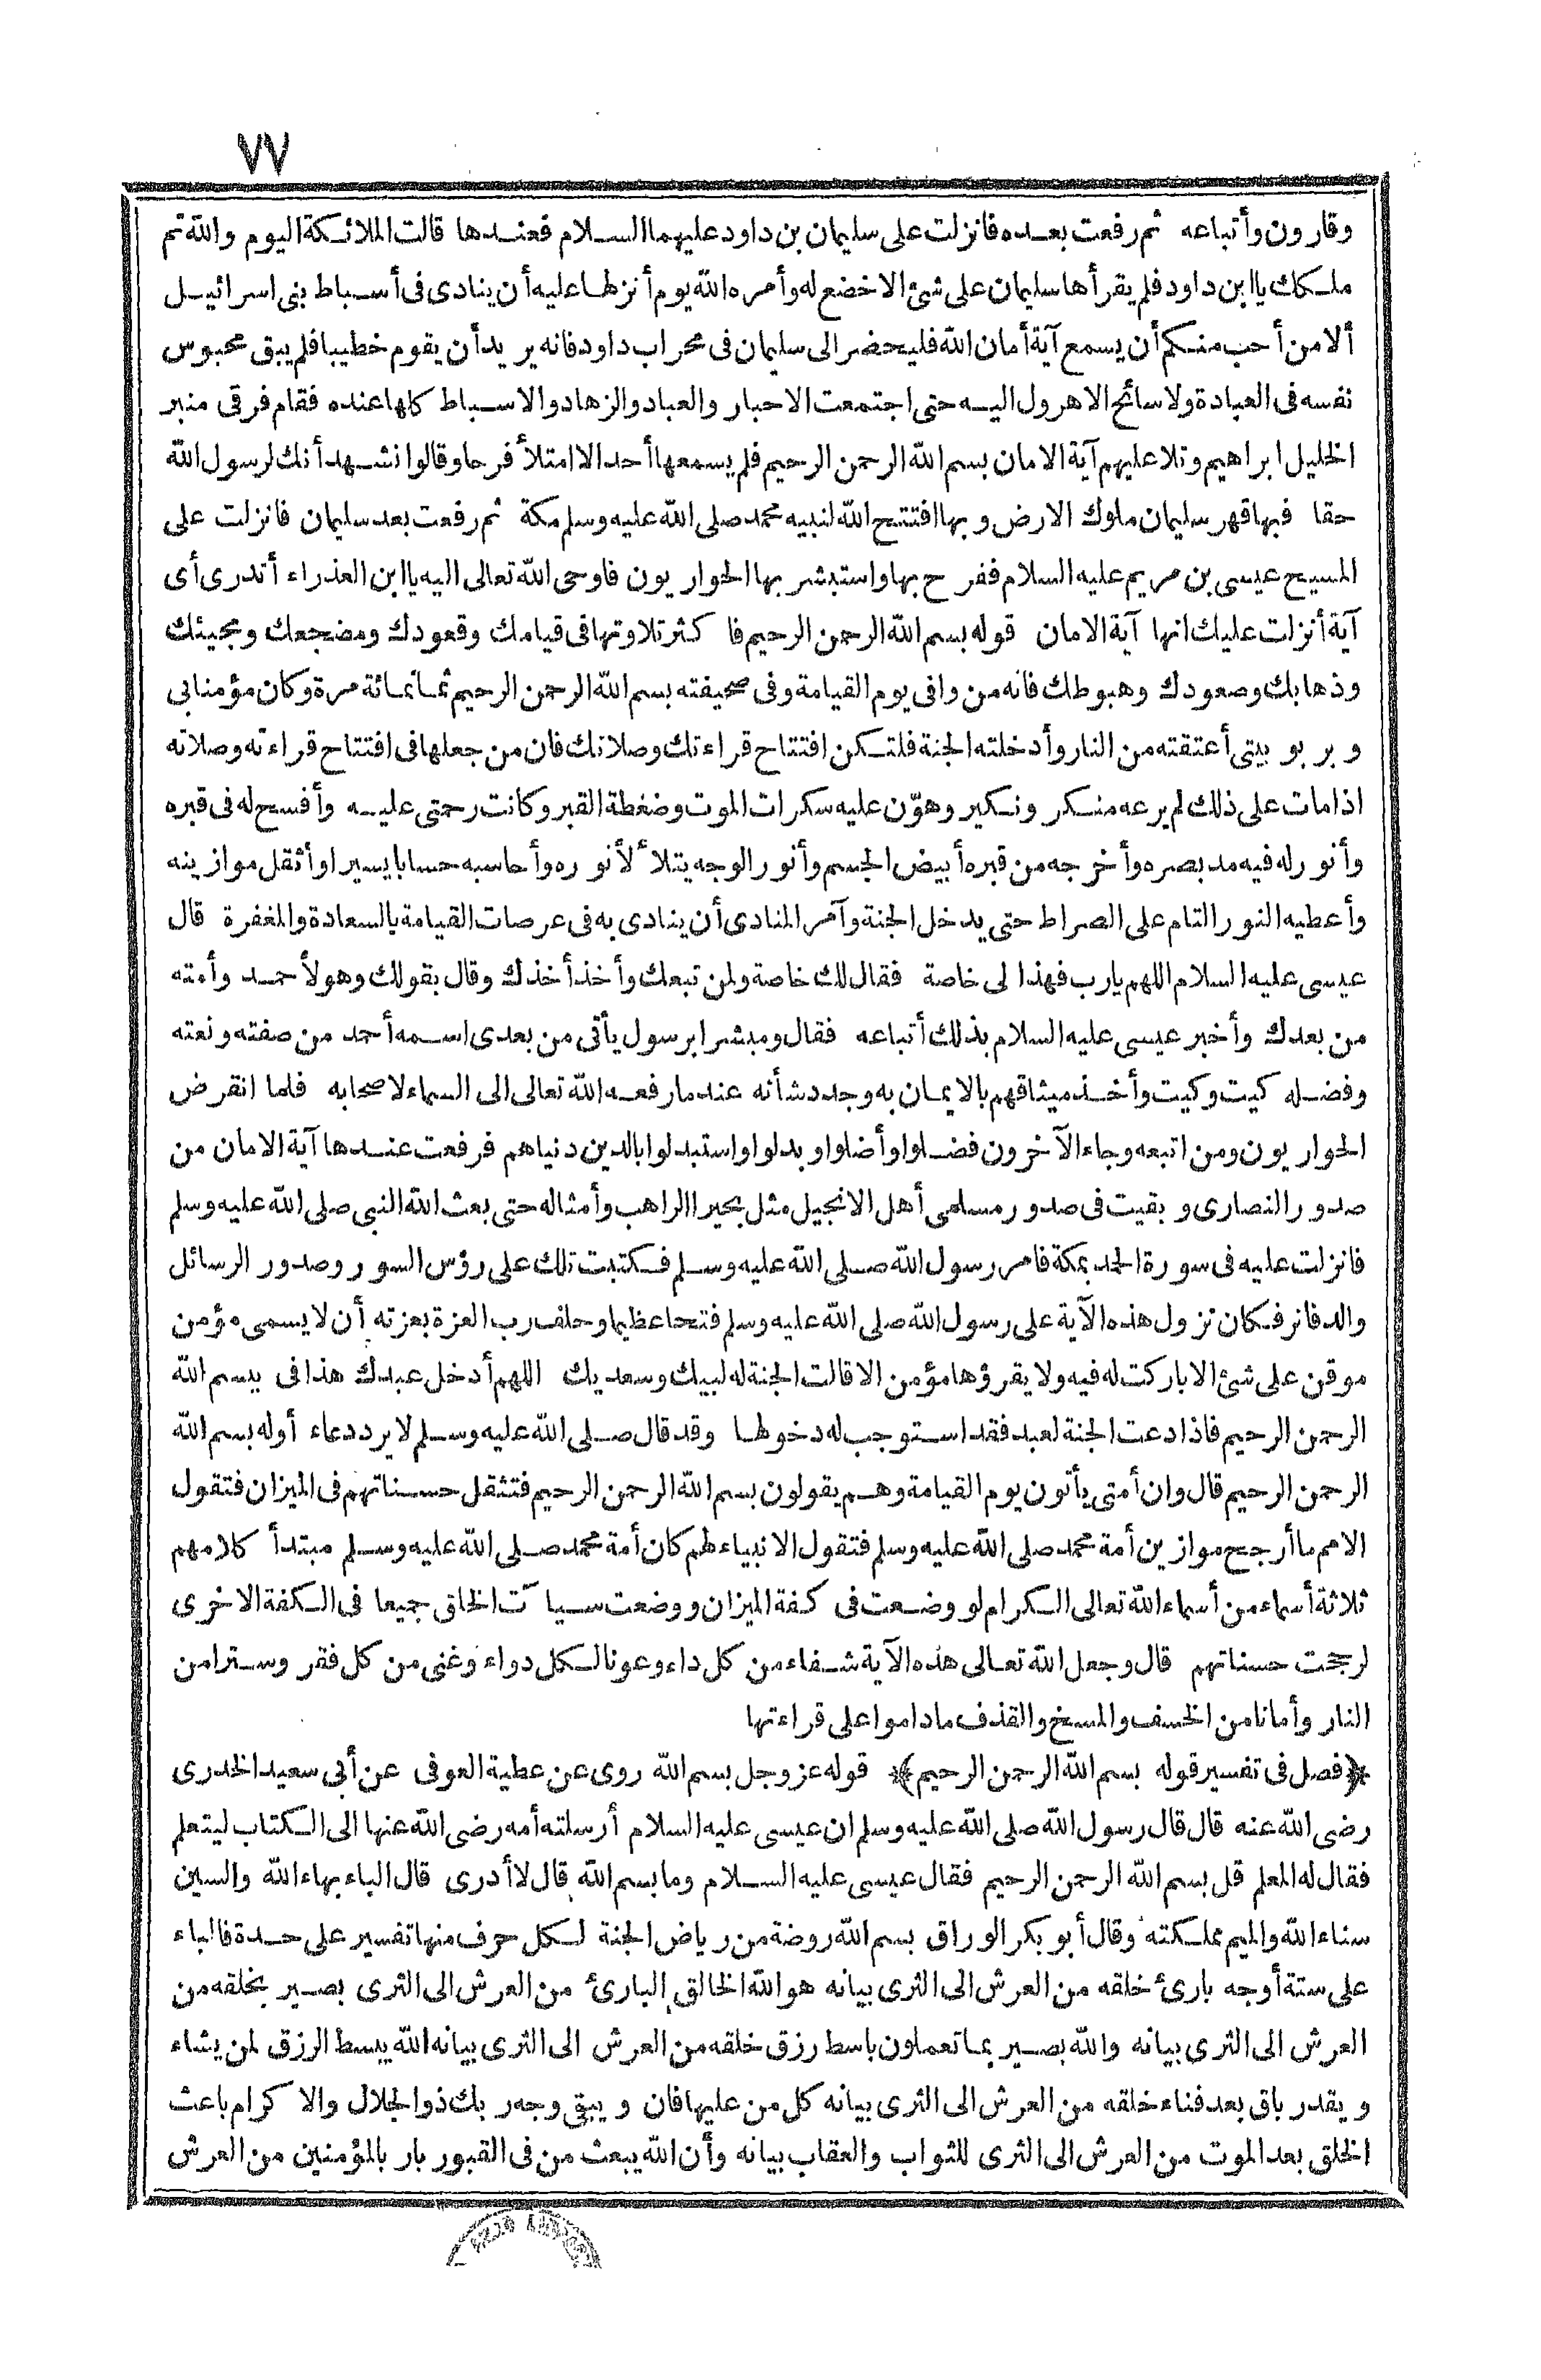 ٧٧
وقارون وأتباعه ثم رفعت بعده فانزلت على سليمان بن داود عليهما السلام فعندها قالت الملائكة اليوم والله تم
ملكك يا ابن داود فلم يقرأها سليمان على شئ الا خضع له وأمره الله يوم أنزلها عليه أن ينادى فى أسباط بنى اسرائيل
ألا من أحب منكم أن يسمع آية أمان الله فليحضر الى سليمان فى محراب داود فانه يريد أن يقوم خطيبا فلم يبق محبوس
نفسه فى العبادة ولا سائح الا هرول اليه حتى اجتمعت الاحبار والعباد والزهاد والاسباط كلها عنده فقام فرقى منبر
الخليل ابراهيم وتلا عليهم آية الامان بسم الله الرحمن الرحيم فلم يسمعها أحد الا امتلأ فرحا وقالوا نشهد أنك لرسول الله
حقا فبها قهر سليمان ملوك الارض وبها افتتح الله لنبيه محمد صلى الله عليه وسلم مكة ثم رفعت بعد سليمان فانزلت على
المسيح عيسى بن مريم عليه السلام ففرح بها واستبشر بها الحواريون فاوحى الله تعالى اليه يا ابن العذراء أتدرى أى
آية أنزلت عليك انها آية الامان قوله بسم الله الرحمن الرحيم فاكثر تلاوتها فى قيامك وقعودك ومضجعك ومجيئك
وذهابك وصعودك وهبوطك فانه من وافى يوم القيامة وفى صحيفته بسم الله الرحمن الرحيم ثمانمائة مرة وكان مؤمنا بى
وبربوبيتى أعتقته من النار وأدخلته الجنة فلتكن افتتاح قراءتك وصلاتك فان من جعلها فى افتتاح قراءته وصلاته
اذا مات على ذلك لم يرعه منكر ونكير وهوّن عليه سكرات الموت وضغطة القبر وكانت رحمتى عليه وأفسح له فى قبره
وأنور له فيه مد بصره وأخرجه من قبره أبيض الجسم وأنور الوجه يتلألأ نوره وأحاسبه حسابا يسيرا وأثقل موازينه
وأعطيه النور التام على الصراط حتى يدخل الجنة وآمر المنادى أن ينادى به فى عرصات القيامة بالسعادة والمغفرة قال
عيسى عليه السلام اللهم يا رب فهذا لى خاصة فقال لك خاصة ولمن تبعك وأخذ أخذك وقال بقولك وهو لأحمد وأمته
من بعدك وأخبر عيسى عليه السلام بذلك أتباعه فقال ومبشرا برسول يأتى من بعدى اسمه أحمد من صفته ونعته
وفضله كيت وكيت وأخذ ميثاقهم بالايمان به وجدد شأنه عند ما رفعه الله تعالى الى السماء لاصحابه فلما انقرض
الحواريون ومن اتبعه وجاء الآخرون فضلوا وأضلوا وبدلوا واستبدلوا بالدين دنياهم فرفعت عندها آية الامان من
صدور النصارى وبقيت فى صدور مسلمى أهل الانجيل مثل بحيرا الراهب وأمثاله حتى بعث الله النبى صلى الله عليه وسلم
فانزلت عليه فى سورة الحمد بمكة فامر رسول الله صلى الله عليه وسلم فكتبت تلك على رؤس السور وصدور الرسائل
والدفاتر فكان نزول هذه الآية على رسول الله صلى الله عليه وسلم فتحا عظيما وحلف رب العزة بعزته أن لا يسمى مؤمن
موقن على شئ الا باركت له فيه ولا يقرؤها مؤمن الا قالت الجنة له لبيك وسعديك اللهم أدخل عبدك هذا فى بسم الله
الرحمن الرحيم فاذا دعت الجنة لعبد فقد استوجب له دخولها وقد قال صلى الله عليه وسلم لا يرد دعاء أوله بسم الله
الرحمن الرحيم قال وان أمتى يأتون يوم القيامة وهم يقولون بسم الله الرحمن الرحيم فتثقل حسناتهم فى الميزان فتقول
الامم ما أرجح موازين أمة محمد صلى الله عليه وسلم فتقول الانبياء لهم كان أمة محمد صلى الله عليه وسلم مبتدأ كلامهم
ثلاثة أسماء من أسماء الله تعالى الكرام لو وضعت فى كفة الميزان ووضعت سيآت الخلق جميعا فى الكفة الاخرى
لرجحت حسناتهم قال وجعل الله تعالى هذه الآية شفاء من كل داء وعونا لكل دواء وغنى من كل فقر وسترا من
النار وأمانا من الخسف والمسخ والقذف ما داموا على قراءتها
﴿فصل فى تفسير قوله بسم الله الرحمن الرحيم﴾ قوله عز وجل بسم الله روى عن عطية العوفى عن أبى سعيد الخدرى
رضى الله عنه قال قال رسول الله صلى الله عليه وسلم ان عيسى عليه السلام أرسلته أمه رضى الله عنها الى الكتاب ليتعلم
فقال له المعلم قل بسم الله الرحمن الرحيم فقال عيسى عليه السلام وما بسم الله قال لا أدرى قال الباء بهاء الله والسين
سناء الله والميم مملكته وقال أبو بكر الوراق بسم الله روضة من رياض الجنة لكل حرف منها تفسير على حدة فالباء
على ستة أوجه بارئ خلقه من العرش الى الثرى بيانه هو الله الخالق البارئ من العرش الى الثرى بصير بخلقه من
العرش الى الثرى بيانه والله بصير بما تعملون باسط رزق خلقه من العرش الى الثرى بيانه الله يبسط الرزق لمن يشاء
ويقدر باق بعد فناء خلقه من العرش الى الثرى بيانه كل من عليها فان ويبقى وجه ربك ذو الجلال والاكرام باعث
الخلق بعد الموت من العرش الى الثرى للثواب والعقاب بيانه وأن الله يبعث من فى القبور بار بالمؤمنين من العرش